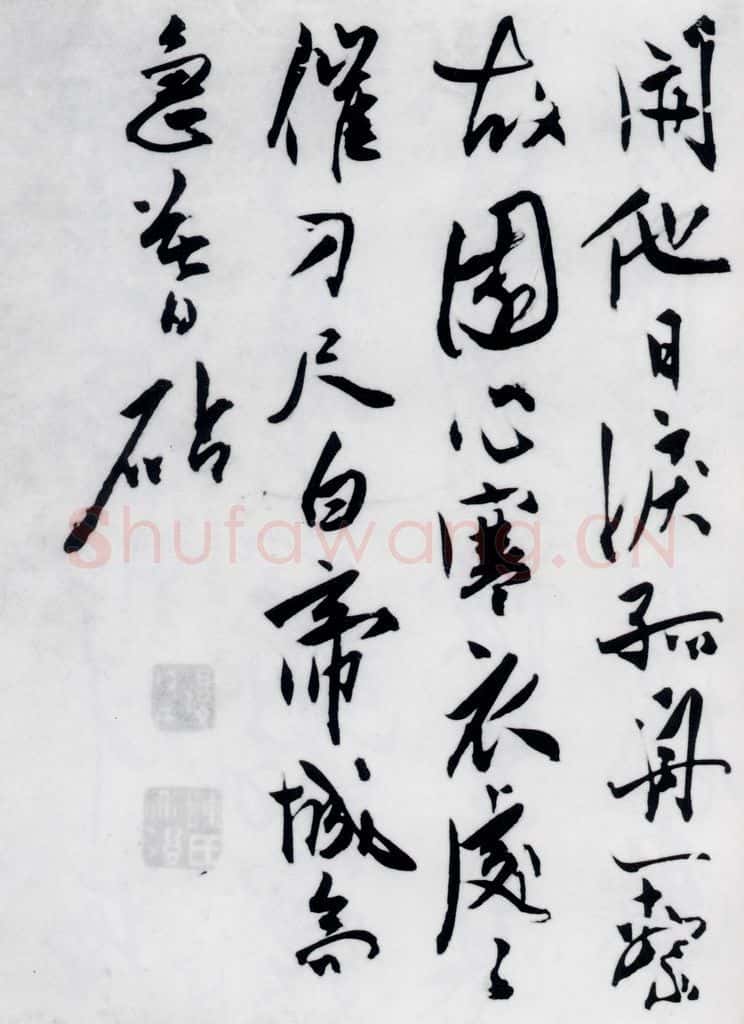 開他日淚孤舟一繫
故園心寒衣處〻
催刀尺白帝城高
急暮砧
Shufawang.CN